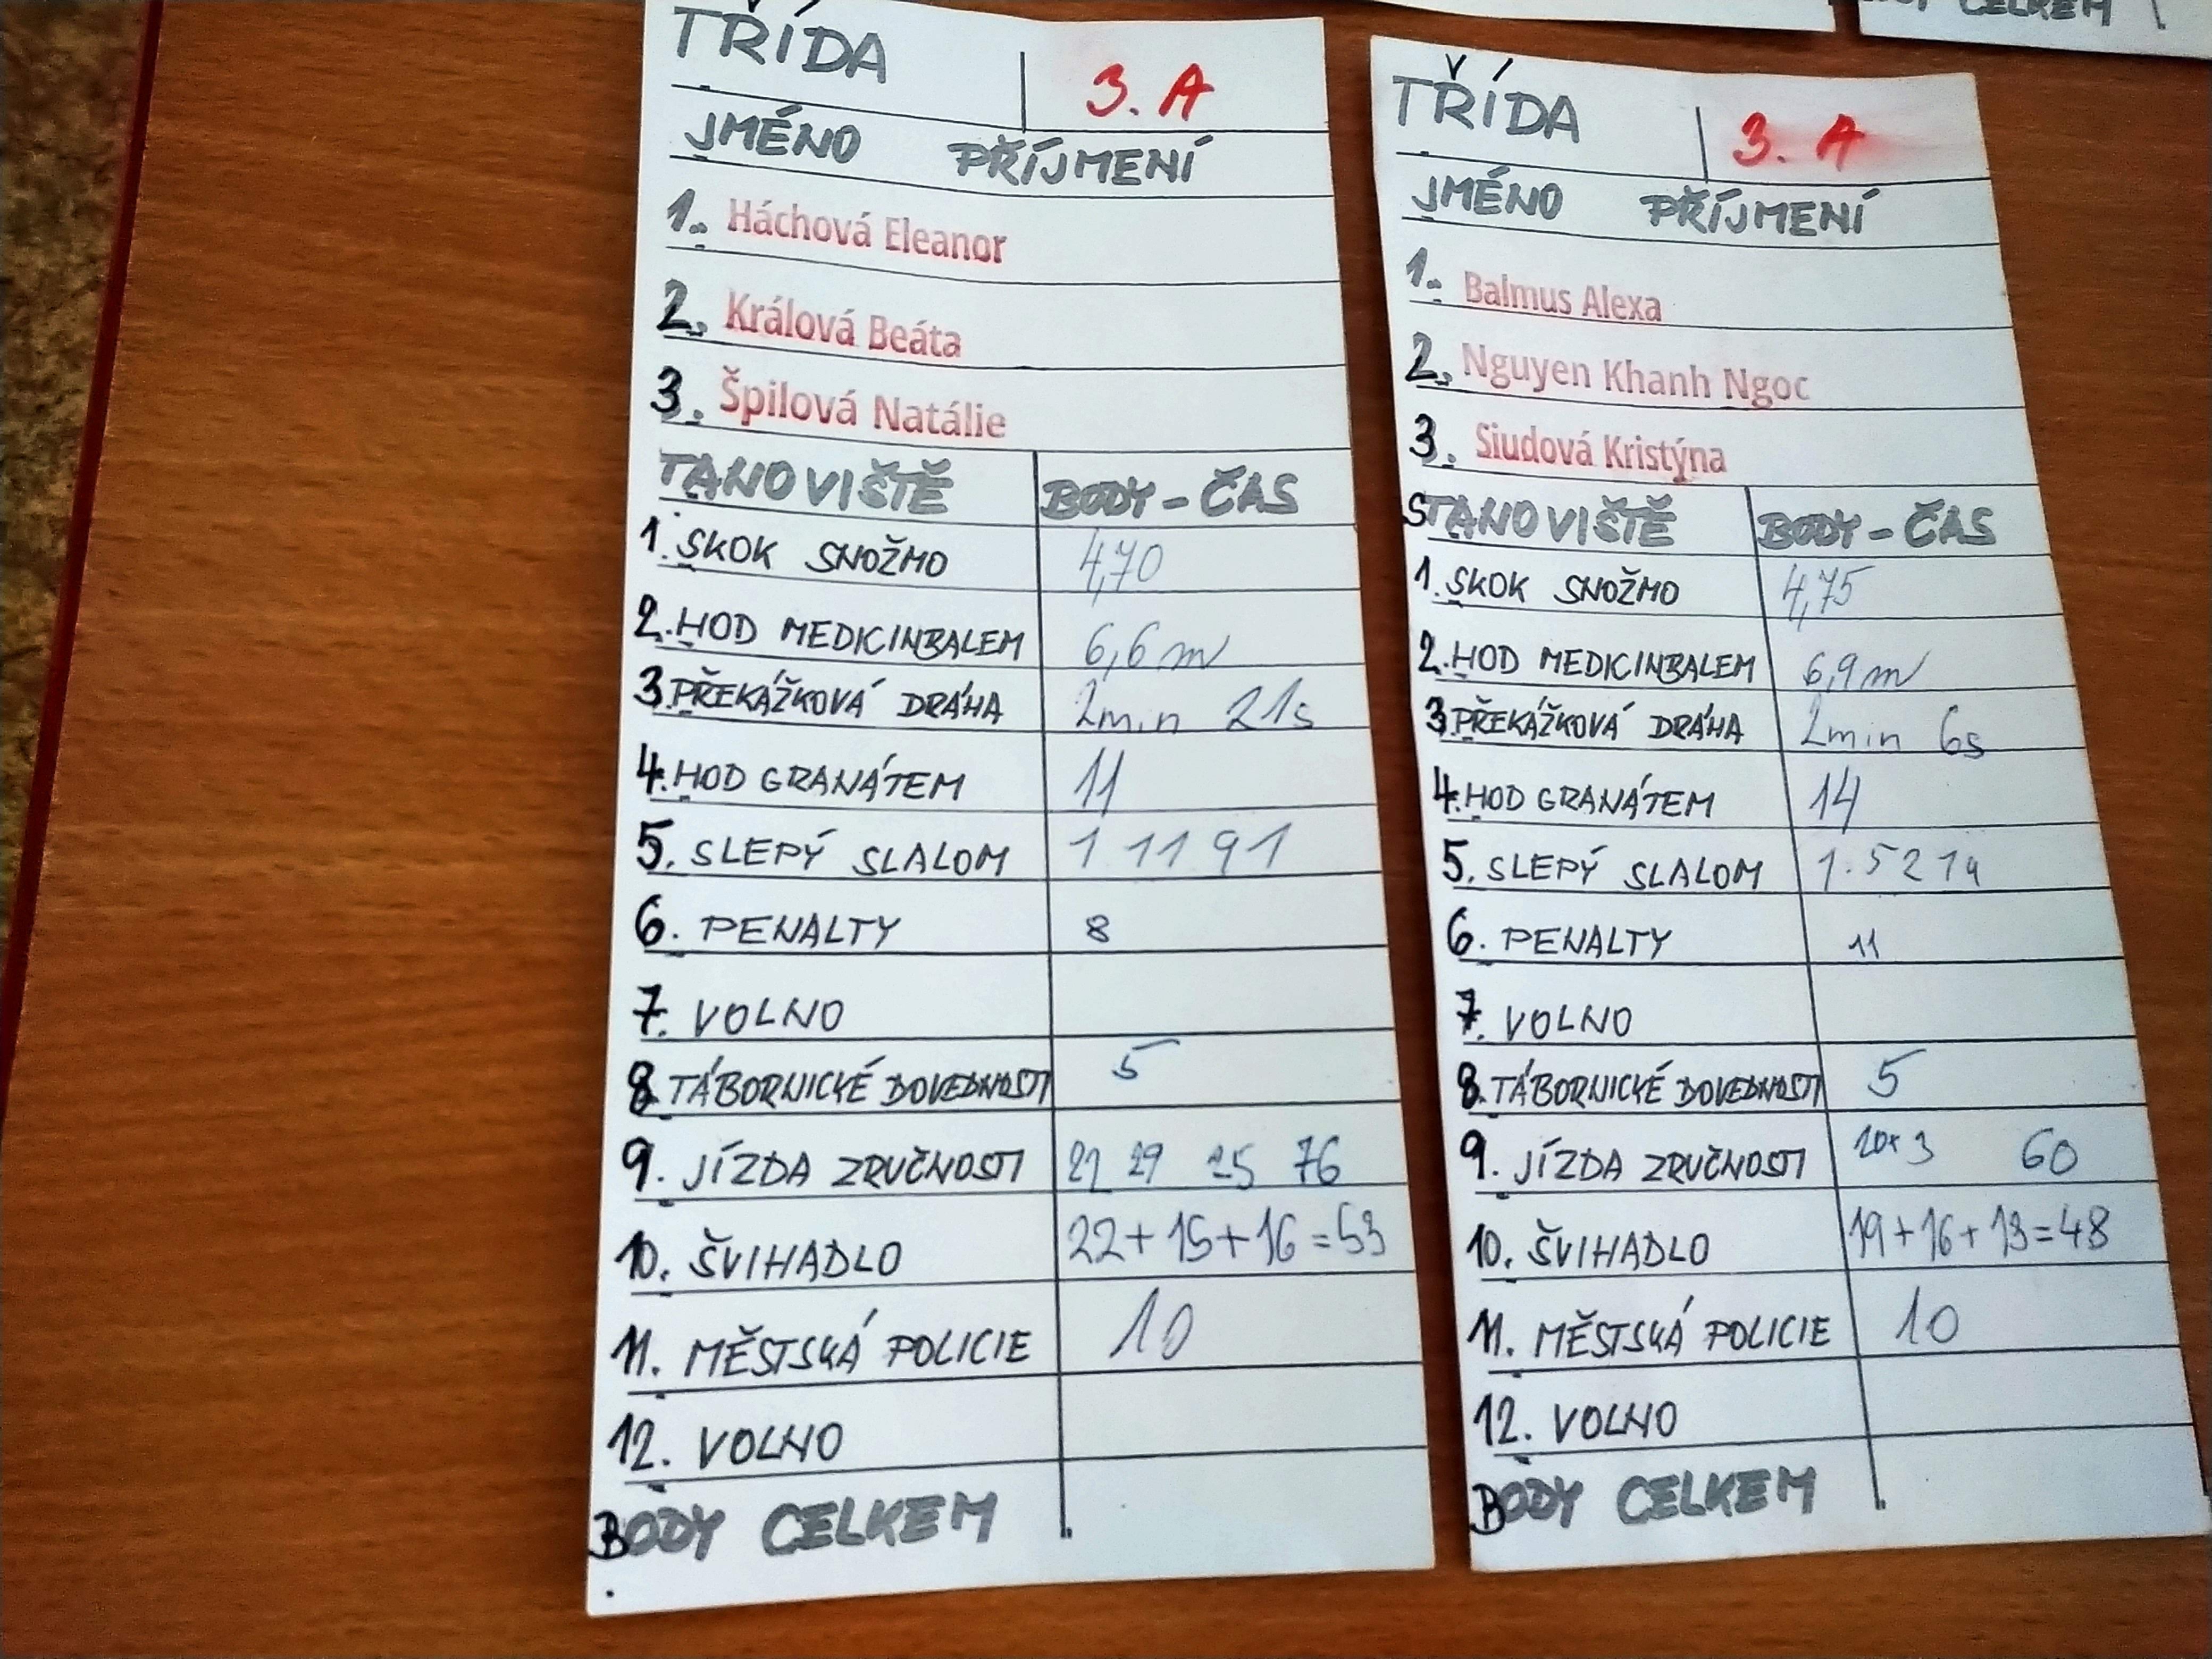 TŘÍDA 3. A
JMÉNO PŘÍJMENÍ
1. Háchová Eleanor
2. Králová Beáta
3. Špilová Natálie
TANOVIŠTĚ BODY - ČAS
1. SKOK SNOŽMO 4,70
2. HOD MEDICINBALEM 6,6 m
3 PŘEKÁŽKOVÁ DRÁHA 2min 21s
4. HOD GRANÁTEM 11
5. SLEPÝ SLALOM 1 11 91
6. PENALTY 8
7. VOLNO
8. TÁBORNICKÉ DOVEDNOSTI 5
9. JÍZDA ZRUČNOSTI 29 25 76
10. ŠVIHADLO 22+15+16=53
11. MĚSTSKÁ POLICIE 10
12. VOLNO
BODY CELKEM
TŘÍDA 3. A
JMÉNO PŘÍJMENÍ
1. Balmus Alexa
2. Nguyen Khanh Ngoc
3. Siudová Kristýna
STANOVIŠTĚ BODY - ČAS
1. SKOK SNOŽMO 4,75
2. HOD MEDICINBALEM 6,9 m
3 PŘEKÁŽKOVÁ DRÁHA 2min 6s
4. HOD GRANÁTEM 14
5. SLEPÝ SLALOM 1.52 14
6. PENALTY 11
7. VOLNO
8. TÁBORNICKÉ DOVEDNOSTI 5
9. JÍZDA ZRUČNOSTI 20x3 60
10. ŠVIHADLO 19+16+13=48
11. MĚSTSKÁ POLICIE 10
12. VOLNO
BODY CELKEM
CELKEM